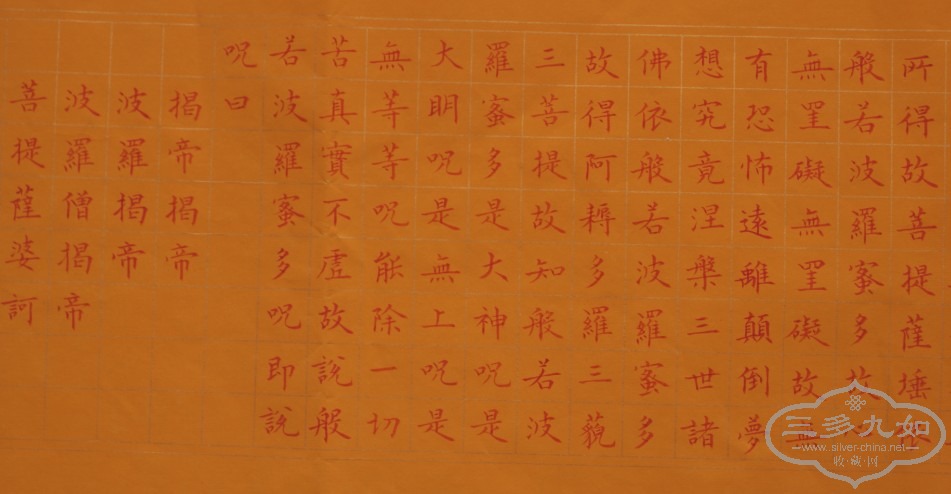 所得故菩提薩埵依
般若波羅蜜多故心
無罣礙無罣礙故無
有恐怖遠離顛倒夢
想究竟涅槃三世諸
佛依般若波羅蜜多
故得阿耨多羅三藐
三菩提故知般若波
羅蜜多是大神呪是
大明呪是無上呪是
無等等呪能除一切
苦真實不虛故說般
若波羅蜜多呪即說
呪曰
揭帝揭帝
波羅揭帝
波羅僧揭帝
菩提薩婆訶
三多九如
www.silver-china.net
收·藏·网